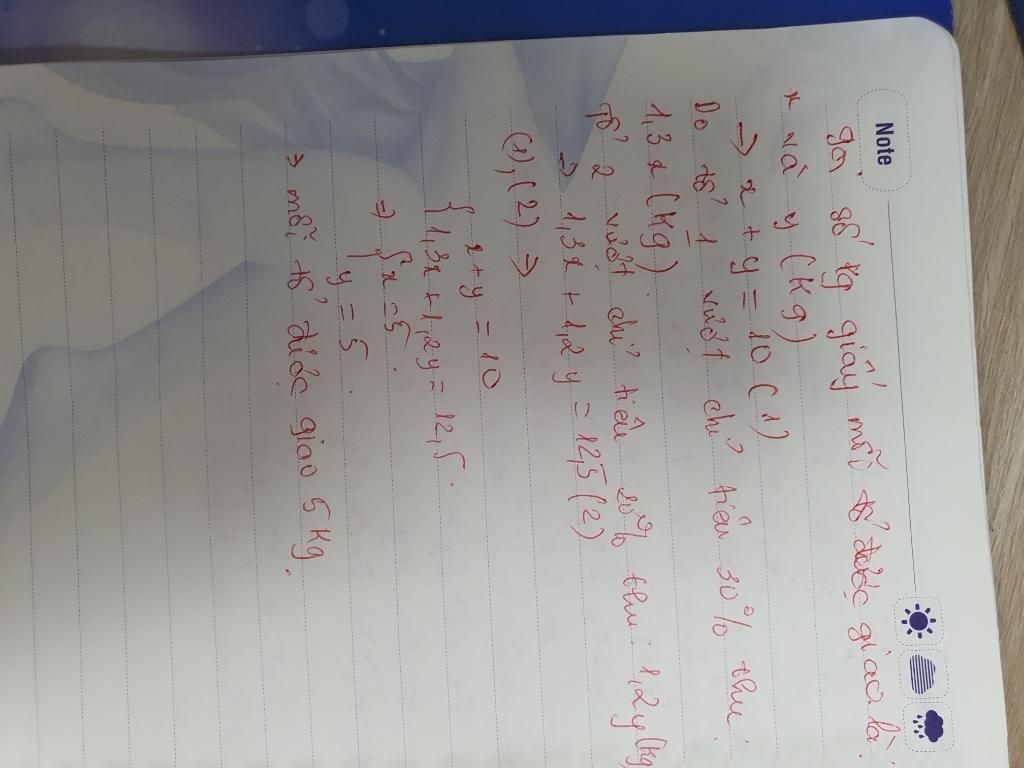 Note
gọi số kg giấy mỗi tổ được giao là:
x và y (kg)
→ x + y = 10 (1)
Do tổ 1 vượt chỉ tiêu 30% thu:
1,3 x (kg)
tổ 2 vượt chỉ tiêu 20% thu: 1,2y (kg)
⇒ 1,3x + 1,2y = 12,5 (2)
(1), (2) ⇒
{ x+y = 10
1,3x + 1,2y = 12,5.
⇒ { x = 5.
y = 5.
⇒ mỗi tổ được giao 5 kg.